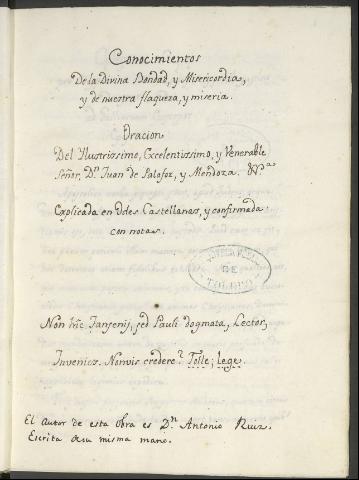 Conocimientos
De la Divina Bondad, y Misericordia,
y de nuestra flaqueza, y miseria.
Oracion
Del Ylustrissimo, Excelentissimo, y Venerable
Señor, Dn. Juan de Palafox, y Mendoza. &c.a
Explicada en Odes Castellanas, y confirmada
con notas.
DE
TOLEDO
Non hîc Jansenij, sed Pauli dogmata, Lector,
Invenies. Nonvis credere? Tolle, lege.
El Autor de esta obra es Dn. Antonio Ruiz.
Escrita de su misma mano.